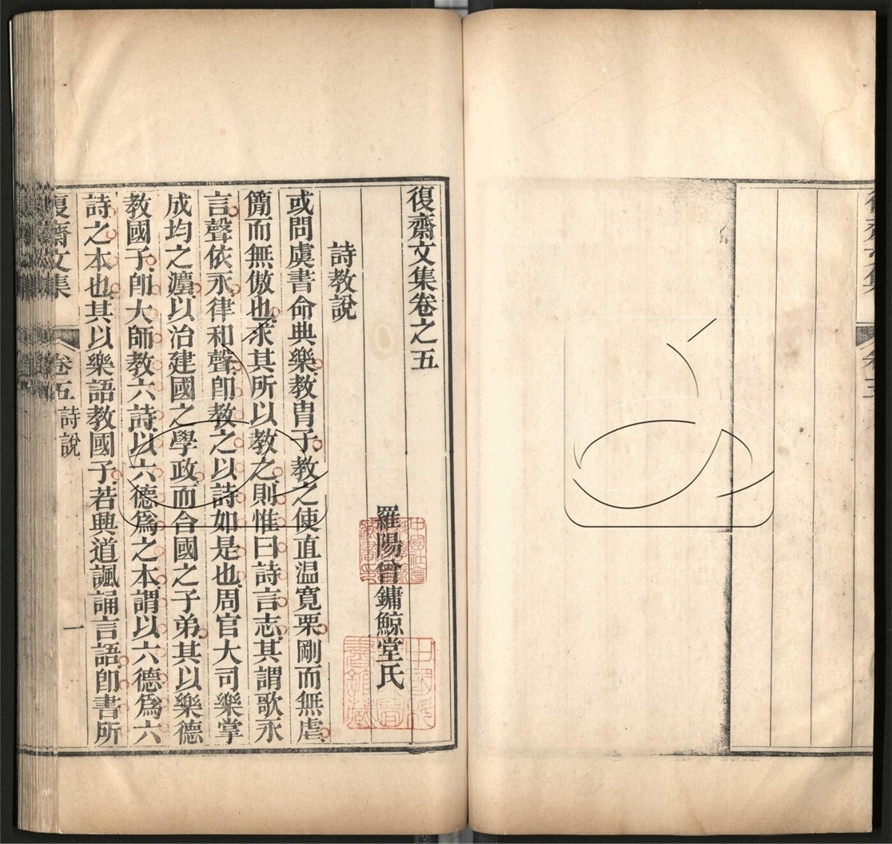 復齋文集卷之五
羅陽曾鏞鯨堂氏
詩教說
或問虞書命典樂教胄子教之使直温寬栗剛而無虐
簡而無傲也求其所以教之則惟曰詩言志其謂歌永
言聲依永律和聲卽教之以詩如是也周官大司樂掌
成均之灋以治建國之學政而合國之子弟其以樂德
教國子卽大師教六詩以六德爲之本謂以六德爲六
詩之本也其以樂語教國子若興道諷誦言語卽書所
復齋文集
卷五
詩說
一